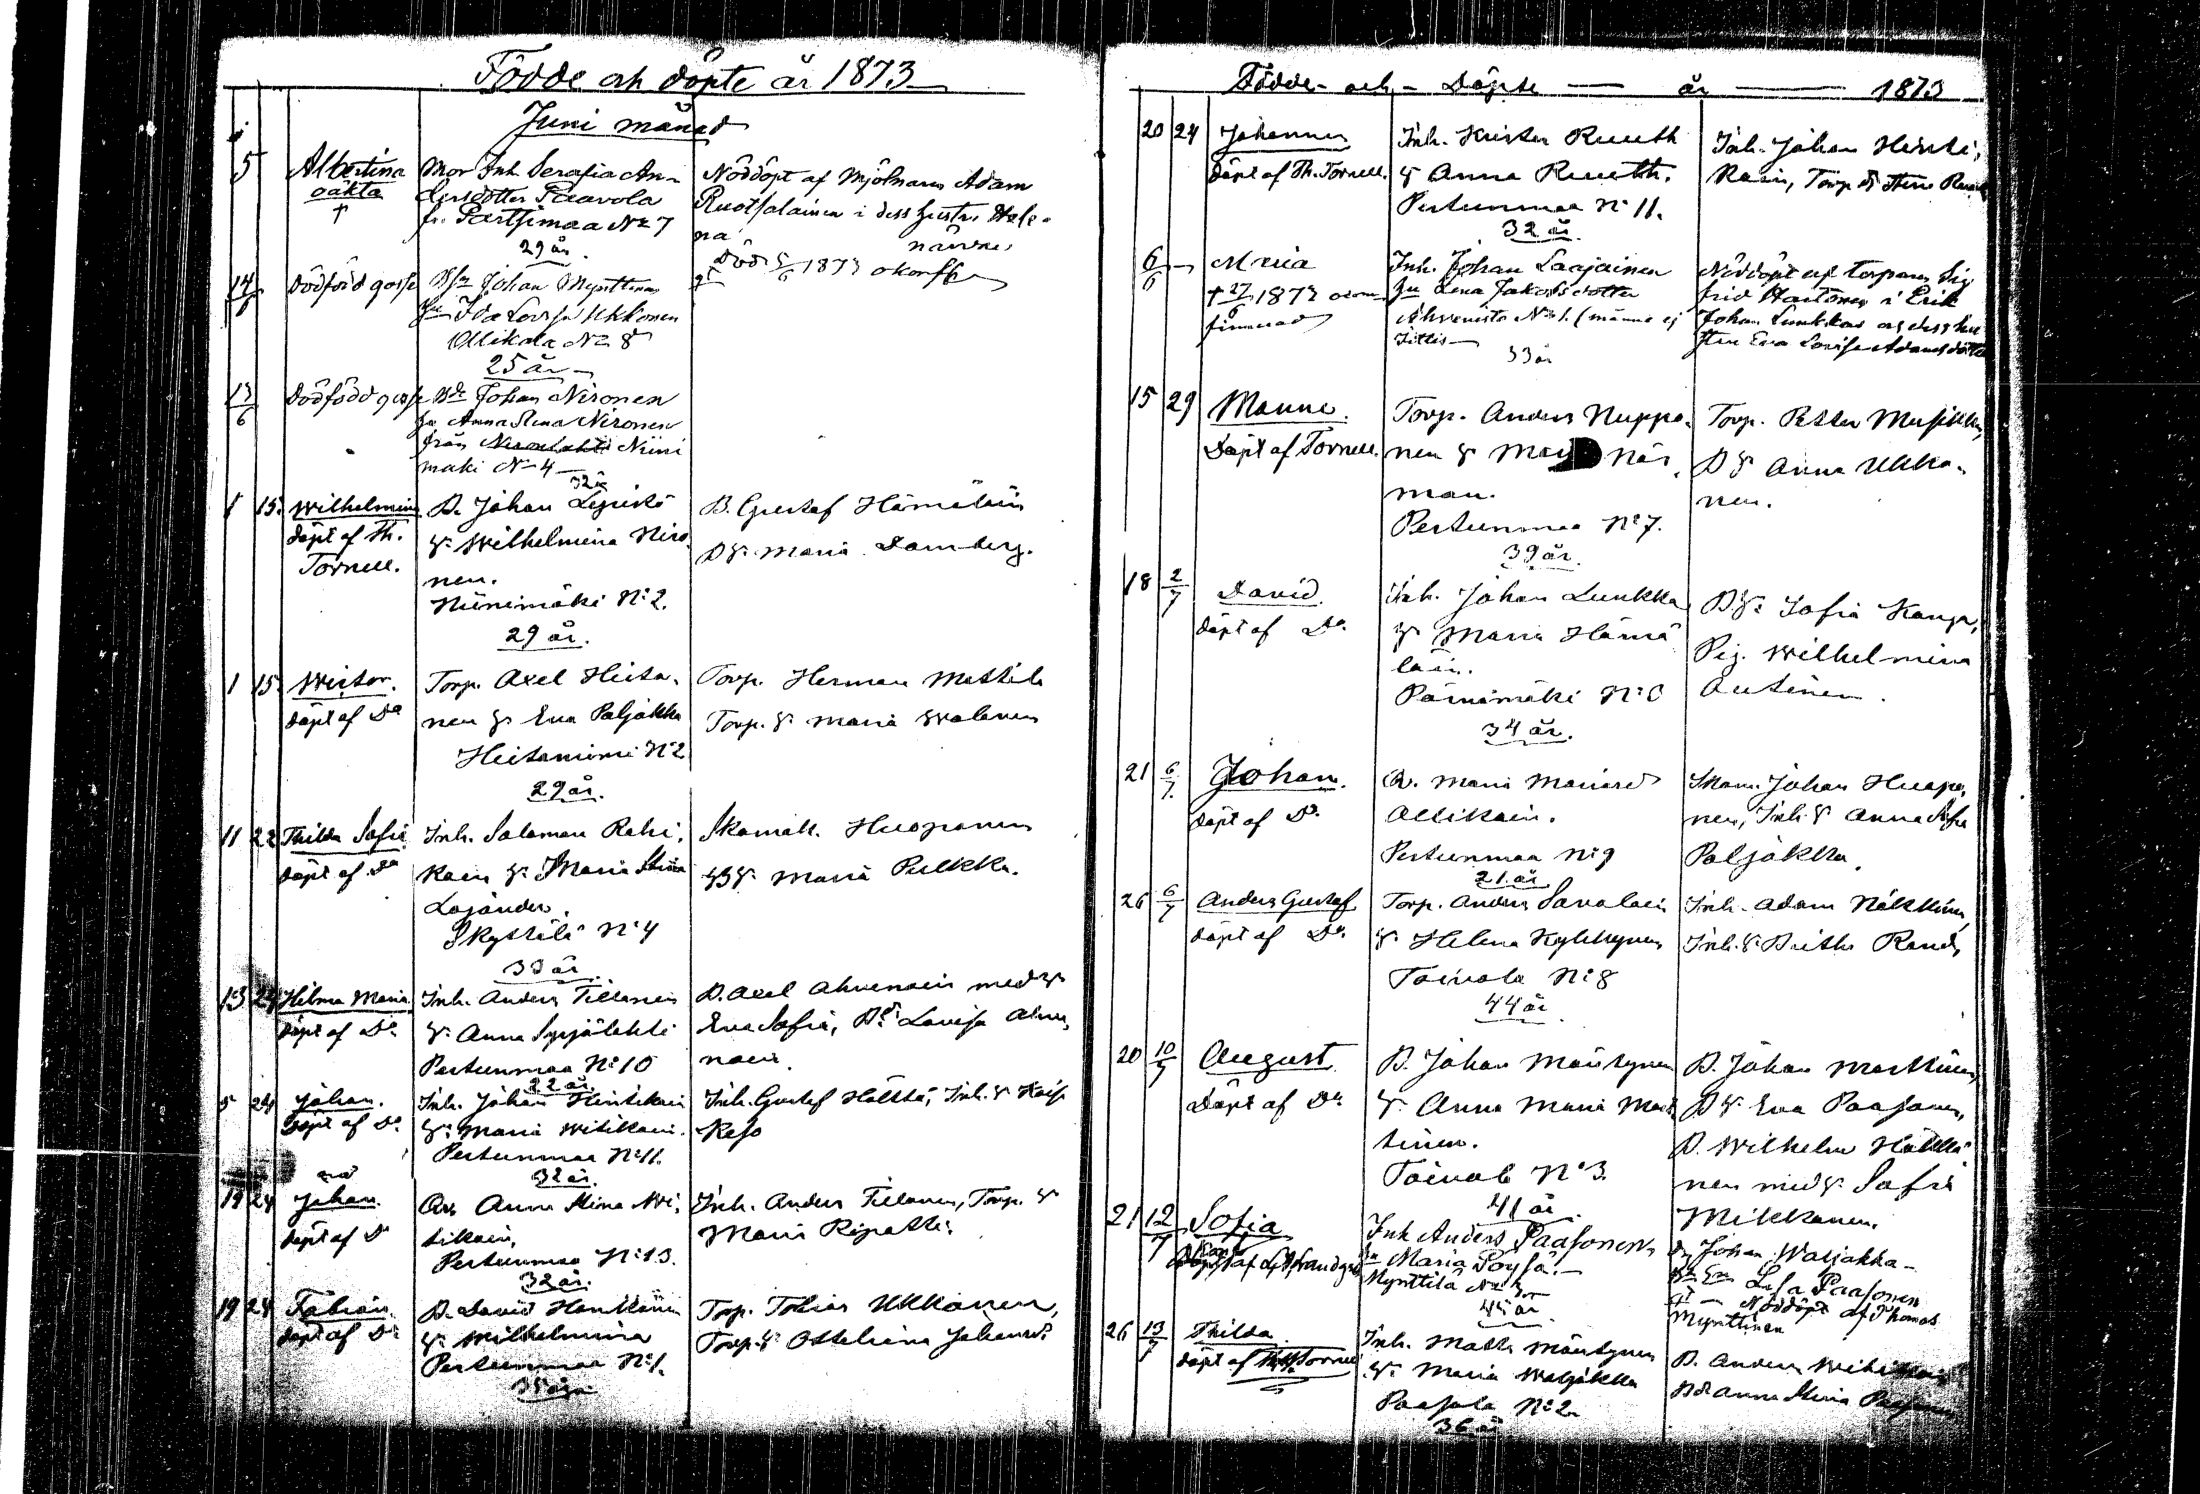 Födde och döpte år 1873
Juni månad
5 Albertina
oäkta
†
Mor Inh. Serafia An-
dersdotter Paavola
fr. Pertjimaa No 7
29 år.
Nöddöpt af Mjölnaren Adam
Ruotsalainen i dess hustru Hele-
na närvaro
Död 5/6 1873 okonff
14/6 Dödfödd gosse
Johan Mynttinen
hu Ida Lovisa Ukkonen
Ollikala No 8
25 år
13/6 Dödfödd gosse
Bde Johan Nironen
hu Anna Stina Nironen
från Niini
mäki No 4
32 år
1 15 Wilhelmina
döpt af Th.
Tornell.
B. Johan Lepistö
H. Wilhelmina Niro
nen.
Niinimäki No 2.
29 år.
B. Gustaf Hämäläin
B.H. Maria Damberg.
1 15 Wictor.
döpt af Do
Torp. Axel Hieta-
nen H. Eva Paljakka
Hietaniemi No 2
29 år.
Torp. Herman Mattila
Torp. H. Maria Walanen
11 22 Thilda Sofia
döpt af Do
Inh. Salomon Rahi-
kain H. Maria Stina
Lojander.
Skyttilä No 4
33 år.
Skomak. Huoponen
H. Maria Pulkka.
13 24 Hilma Maria
döpt af Do
Inh. Anders Tillanen
H. Anna Syrjälahti
Pertunmaa No 10
22 år.
B. Axel Ahvenain med H.
Eva Sofia, Lovisa Ahve
nain.
5 24 Johan.
Döpt af Do
Inh. Johan Hintikain
H. Maria Witikain.
Pertunmaa No 11.
32 år.
Inh. Gustaf Hölttä, Inh. H. Kaisa
Reso
19 24 Johan.
döpt af Do
Anna Stina Wi-
tikain.
Pertunmaa No 13.
32 år.
Inh. Anders Tillanen, Torp. H.
Maria Ripatti.
19 24 Fabian
döpt af Do
B. David Hantunen
H. Wilhelmina
Pertunmaa No 1.
Torp. Tobias Ukkonen,
Torp. H. Otteliana Johansd.
Födde- och - Döpte — år — 1873
20 24 Johannes
döpt af Th. Tornell.
Inh. Krister Ruuth
H. Anna Ruuth.
Pertunmaa No 11.
32 år.
Inh. Johan Hinti-
kain, Torp. H. Stina
6/6 Maria
† 27/6 1873
Inh. Johan Laajainen
hu Lena Jakobsdotter
Ahvenisto No 1. (männe ej
33 år
Nöddöpt af torparen Sig
frid Hartonen i Erik
Johan Lunkkas och dess hu
stru Eva Lovisa Adamsdotter
15 29 Manne.
Döpt af Tornell.
Torp. Anders Nuppo-
nen H. När
man.
Pertunmaa No 7.
39 år.
Torp. Petter Musikka,
B.H. Anna Ukko-
nen.
18 2/7 David.
döpt af Do
Inh. Johan Lunkka
H. Maria Hämä
läin.
34 år.
B.H. Sofia Kanga,
Pig. Wilhelmina
Autinen.
21 6/7 Johan.
döpt af Do
Maria
Ollikain.
Pertunmaa No 9
21 år
Skom. Johan Huopo-
nen, Inh. H. Anna Sofia
Paljakka.
26 6/7 Anders Gustaf
döpt af Do
Torp. Anders Savolain
H. Helena Kylkkynen
Toivola No 8
44 år
Inh. Adam Näkkinen,
Inh. H. Britha
20 10/7 August
Döpt af Do
B. Johan Mäntynen
H. Anna Maria Mart
tinen.
Toivola No 3.
41 år.
B. Johan Marttinen,
B.H. Eva Paasonen,
B. Wilhelm Häkkä
nen med H. Sofia
Mikkonen.
21 12/7 Sofia
Inh Anders Paasonen
hu Maria Pöyså.
Mynttilä No 3
45 år
Johan Waljakka
Lisa Paasonen
Nöddöpt af Thomas
Mynttinen
26 13/7 Thilda.
döpt af Th. Tornell
Inh. Matts Mäntynen
H. Maria Waljakka
Paasola No 2
36 år
B. Anders
Anna Stina